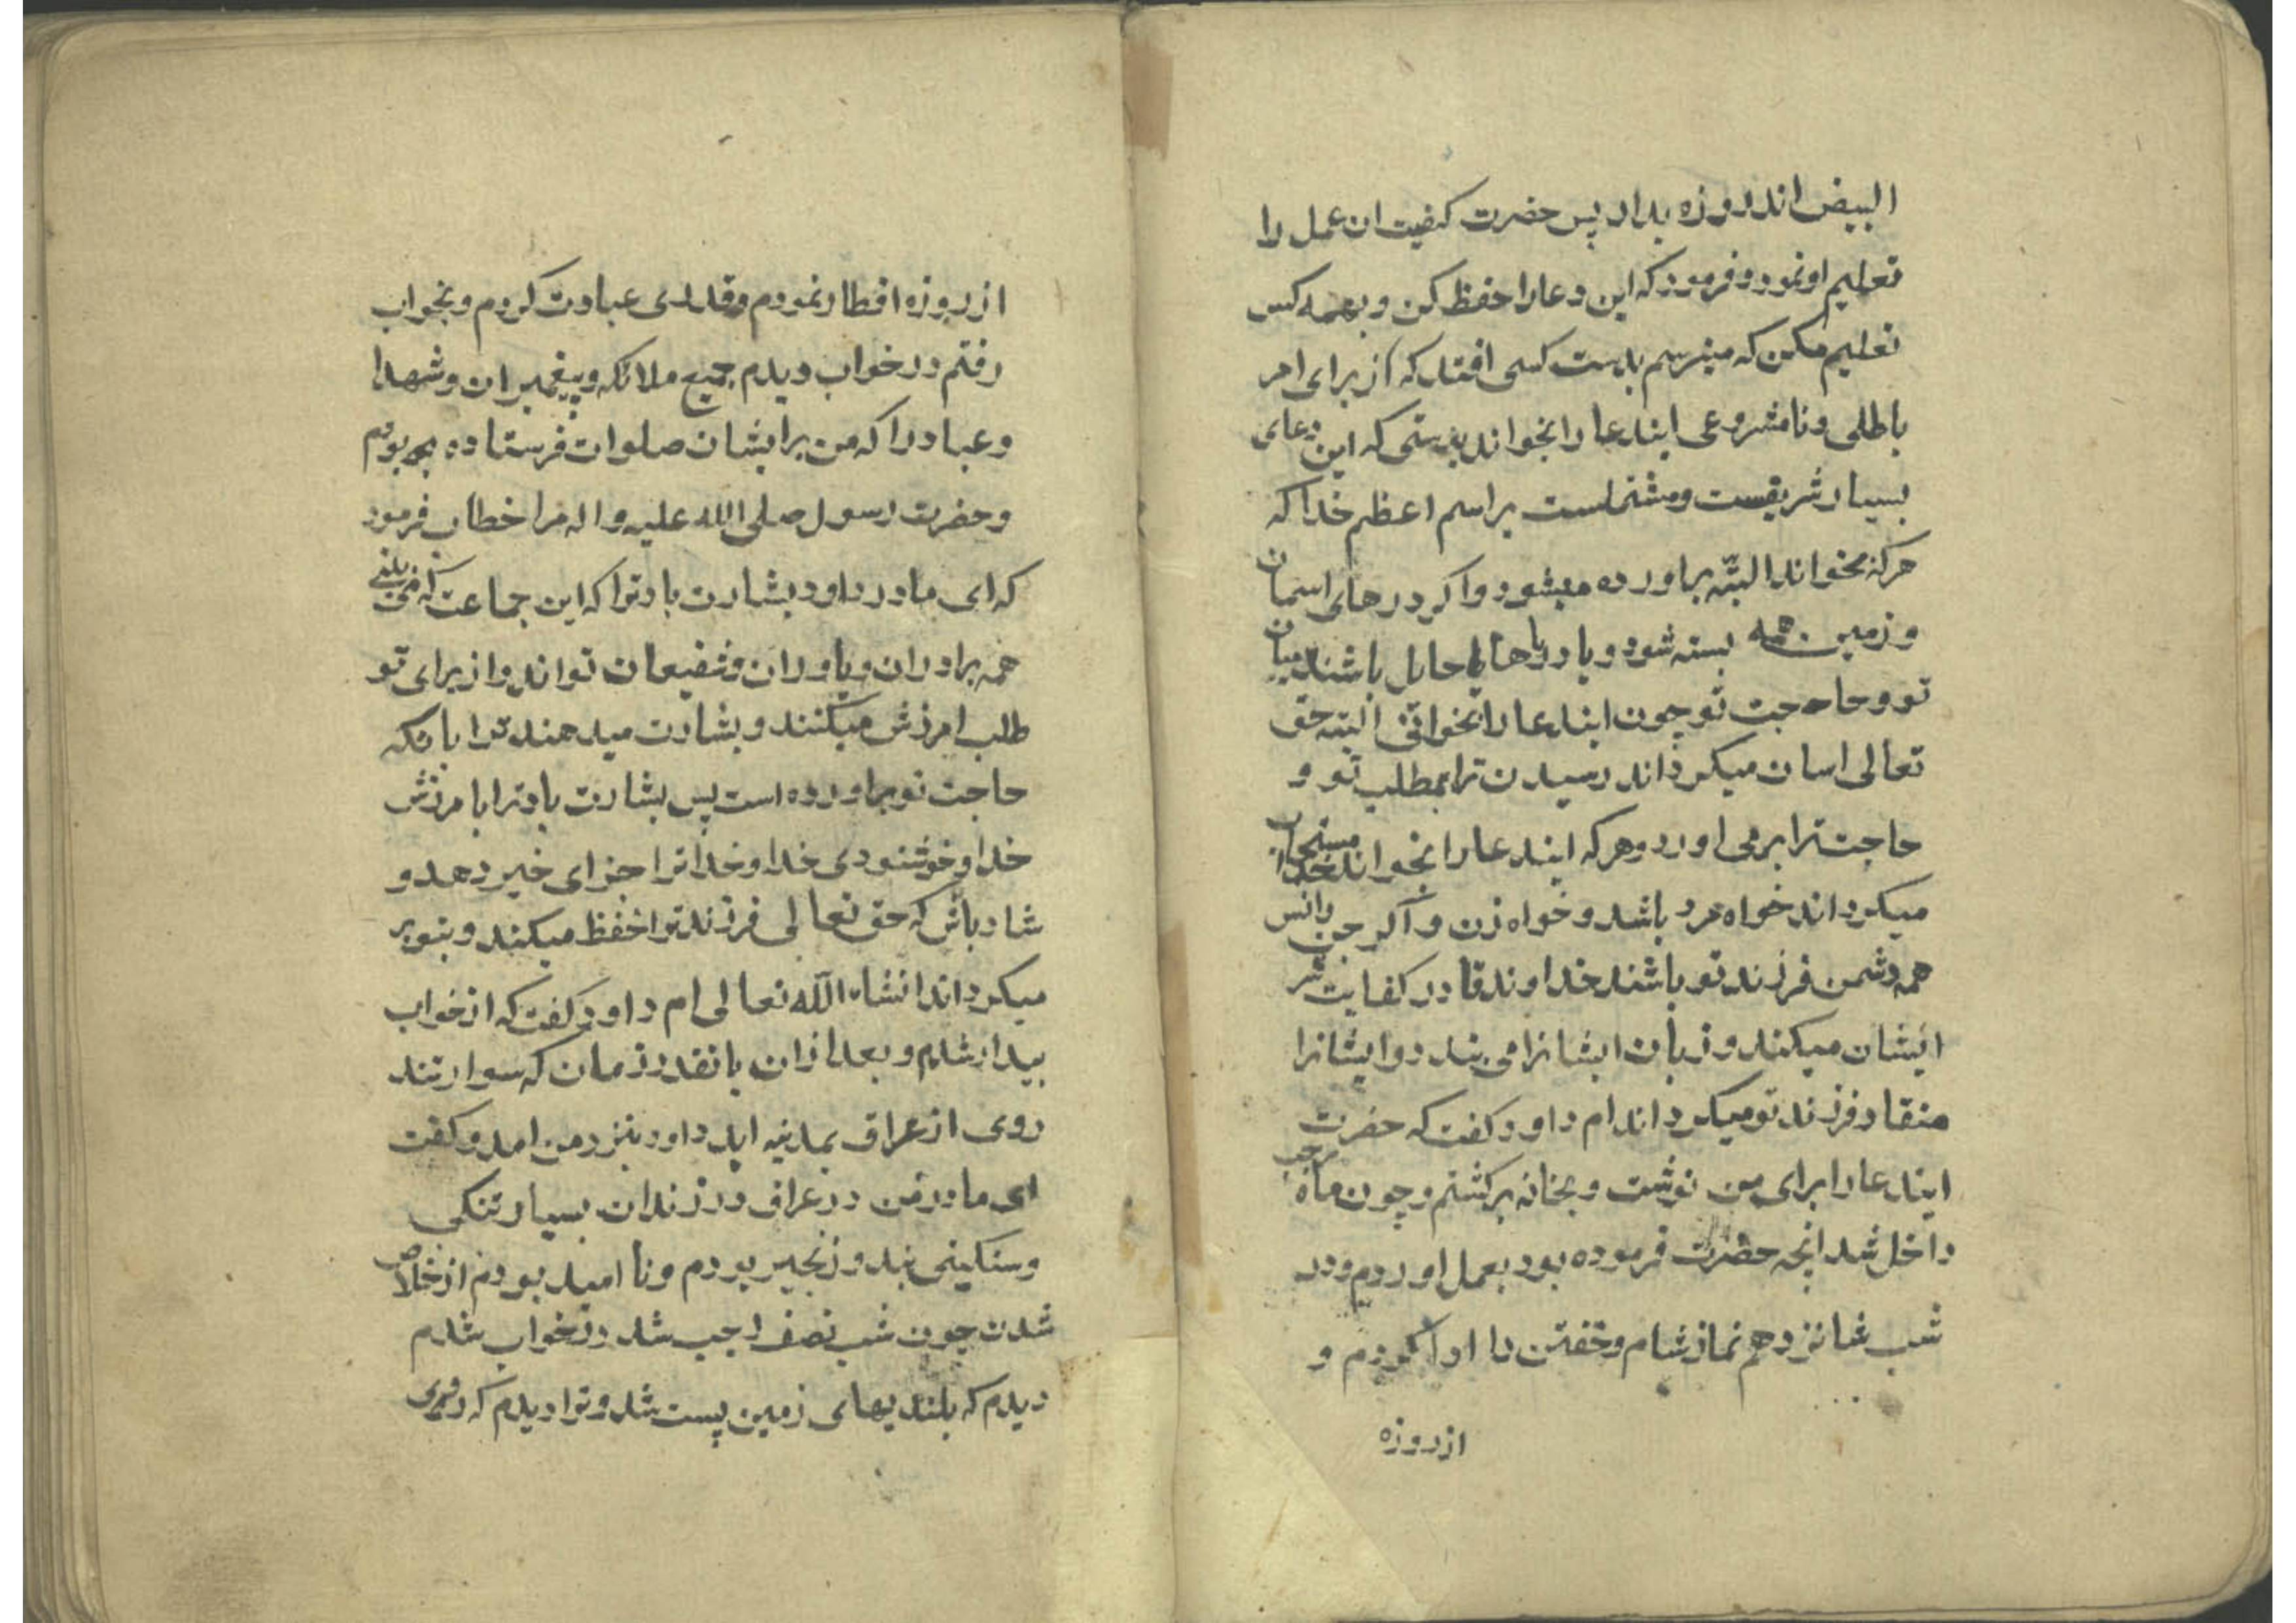 البیض اند روزه بدار پس حضرت کیفیت ان عمل را
تعلیم او نمود و فرمود که این دعا را حفظ کن و بهمه کس
تعلیم مکن که میترسم بدست کسی افتد که از برای امر
باطلی و نامشروعی ایندعا را بخواند بدرستی که این دعای
بسیار شریفست و مشتملست بر اسم اعظم خدا که
هرکه بخواند البتّه براورده میشود و اکر درهای اسمان
و زمین همه بسته شود و یا دریاها حایل باشند میان
تو و حاجت تو چون ایندعا را بخوانی البته حق
تعالی اسان میکرداند رسیدن ترا بمطلب تو و
حاجت ترا برمی اورد و هرکه ایندعا را بخواند خدا مستجاب
میکرداند خواه مرد باشد و خواه زن و اکر جن و انس
همه دشمن فرزند تو باشند خداوند قادر کفایت شر
ایشان میکند و زبان ایشانرا می بندد و ایشانرا
منقاد فرزند تو میکرداند ام داود کفت که حضرت
ایندعا را برای من نوشت و بخانه برکشتم و چون ماه رجب
داخل شد انچه حضرت فرموده بود بعمل اوردم و در
شب شانزدهم نماز شام و خفتن را ادا کردم و
از روزه
از روزه افطار نمودم و قدری عبادت کردم و بخواب
رفتم در خواب دیدم جمیع ملائکه و پیغمبران و شهدا
و عباد را که من برایشان صلوات فرستاده بودم
و حضرت رسول صلی الله علیه و اله مرا خطاب فرمود
که ای مادر داود بشارت باد ترا که این جماعت که می بینی
همه برادران و یاوران و شفیعان تو اند و از برای تو
طلب امرزش میکنند و بشارت میدهند ترا بانکه
حاجت تو براورده است پس بشارت باد ترا بامرزش
خدا و خوشنودی خدا و خدا ترا جزای خیر دهد و
شاد باش که حق تعالی فرزند ترا حفظ میکند و بتو بر
میکرداند انشاء اللّه تعالی ام داود کفت که از خواب
بیدار شدم و بعد از ان بانقدر زمان که سوار تند
روی از عراق بمدینه اید داود بنزد من امد و کفت
ای مادر من در عراق در زندان بسیار تنکی
و سنکینی بند و زنجیر بودم و نا امید بودم از خلاص
شدن چون شب نصف رجب شد در خواب شدم
دیدم که بلندیهای زمین پست شد و ترا دیدم که بروی